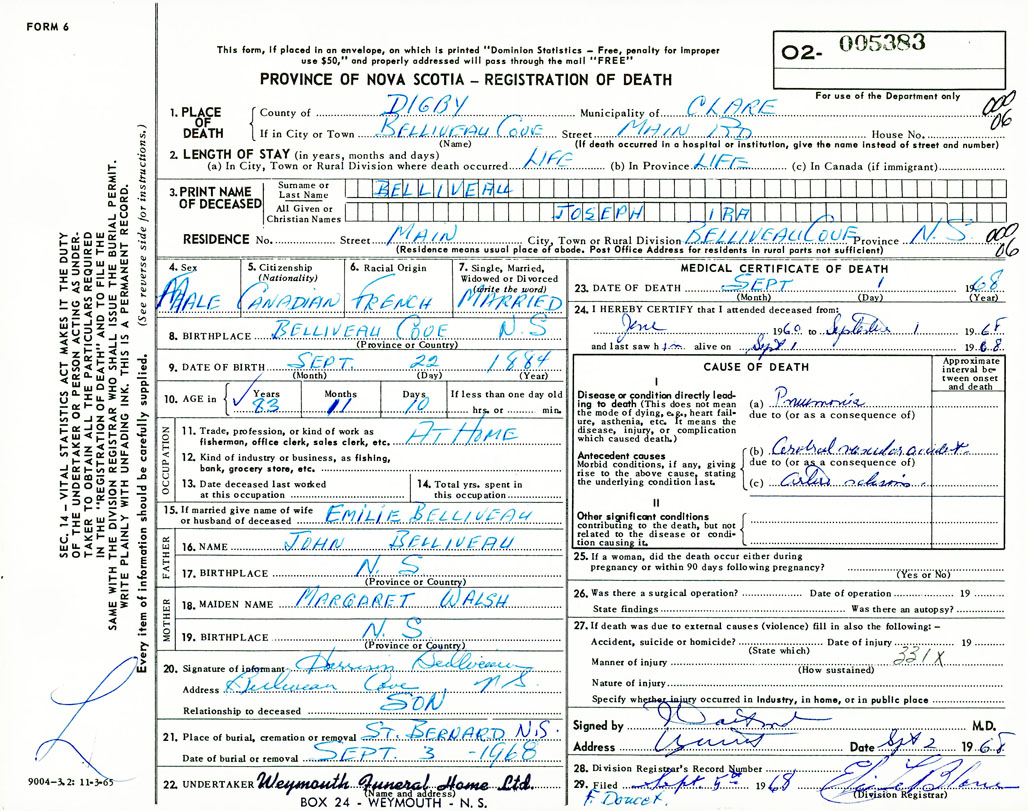 FORM 6
This form, if placed in an envelope, on which is printed "Dominion Statistics – Free, penalty for improper
use $50," and properly addressed will pass through the mail "FREE"
PROVINCE OF NOVA SCOTIA – REGISTRATION OF DEATH
O2- 005383
For use of the Department only
1. PLACE OF DEATH County of DIGBY Municipality of CLARE 000
If in City or Town BELLIVEAU COVE Street MAIN RD House No. 06
(Name) (If death occurred in a hospital or institution, give the name instead of street and number)
2. LENGTH OF STAY (in years, months and days)
(a) In City, Town or Rural Division where death occurred LIFE (b) In Province LIFE (c) In Canada (if immigrant)
3. PRINT NAME OF DECEASED Surname or Last Name BELLIVEAU
All Given or Christian Names JOSEPH IRA
RESIDENCE No. Street MAIN City, Town or Rural Division BELLIVEAU COVE Province N.S. 000
(Residence means usual place of abode. Post Office Address for residents in rural parts not sufficient) 06
4. Sex 5. Citizenship (Nationality) 6. Racial Origin 7. Single, Married, Widowed or Divorced (write the word)
MALE CANADIAN FRENCH MARRIED
8. BIRTHPLACE BELLIVEAU COVE N.S
(Province or Country)
9. DATE OF BIRTH SEPT. 22 1884
(Month) (Day) (Year)
10. AGE in Years Months Days If less than one day old
83 11 10 hrs. or min.
OCCUPATION
11. Trade, profession, or kind of work as
fisherman, office clerk, sales clerk, etc. AT HOME
12. Kind of industry or business, as fishing,
bank, grocery store, etc.
13. Date deceased last worked
at this occupation
14. Total yrs. spent in
this occupation
15. If married give name of wife
or husband of deceased EMILIE BELLIVEAU
FATHER
16. NAME JOHN BELLIVEAU
17. BIRTHPLACE N.S
(Province or Country)
MOTHER
18. MAIDEN NAME MARGARET WALSH
19. BIRTHPLACE N.S
(Province or Country)
20. Signature of informant Belliveau
Address Belliveau Cove N.S.
Relationship to deceased SON
21. Place of burial, cremation or removal ST. BERNARD N.S.
Date of burial or removal SEPT. 3 - 1968
22. UNDERTAKER Weymouth Funeral Home Ltd.
(Name and address)
BOX 24 - WEYMOUTH - N.S.
MEDICAL CERTIFICATE OF DEATH
23. DATE OF DEATH SEPT 1 1968
(Month) (Day) (Year)
24. I HEREBY CERTIFY that I attended deceased from:
June 1960 to September 1 1968
and last saw him alive on Sept 1 1968
CAUSE OF DEATH
Approximate interval between onset and death
I
Disease or condition directly lead-
ing to death (This does not mean
the mode of dying, e.g., heart fail-
ure, asthenia, etc. It means the
disease, injury, or complication
which caused death.)
(a) Pneumonia
due to (or as a consequence of)
Antecedent causes
Morbid conditions, if any, giving
rise to the above cause, stating
the underlying condition last.
(b) Cerebral vascular accident
due to (or as a consequence of)
(c)
II
Other significant conditions
contributing to the death, but not
related to the disease or condi-
tion causing it.
25. If a woman, did the death occur either during
pregnancy or within 90 days following pregnancy?
(Yes or No)
26. Was there a surgical operation? Date of operation 19
State findings Was there an autopsy?
27. If death was due to external causes (violence) fill in also the following: –
Accident, suicide or homicide? Date of injury 19
(State which)
Manner of injury 331X
(How sustained)
Nature of injury
Specify whether injury occurred in Industry, in home, or in public place
Signed by M.D.
Address Date Sept 2 1968
28. Division Registrar's Record Number
29. Filed Sept 5th 1968
(Division Registrar)
F. Doucet
SEC. 14 – VITAL STATISTICS ACT MAKES IT THE DUTY
OF THE UNDERTAKER OR PERSON ACTING AS UNDER-
TAKER TO OBTAIN ALL THE PARTICULARS REQUIRED
IN THE "REGISTRATION OF DEATH" AND TO FILE THE
SAME WITH THE DIVISION REGISTRAR WHO SHALL ISSUE THE BURIAL PERMIT.
WRITE PLAINLY WITH UNFADING INK. THIS IS A PERMANENT RECORD.
Every item of information should be carefully supplied. (See reverse side for instructions.)
9004-3.2: 11-3-65